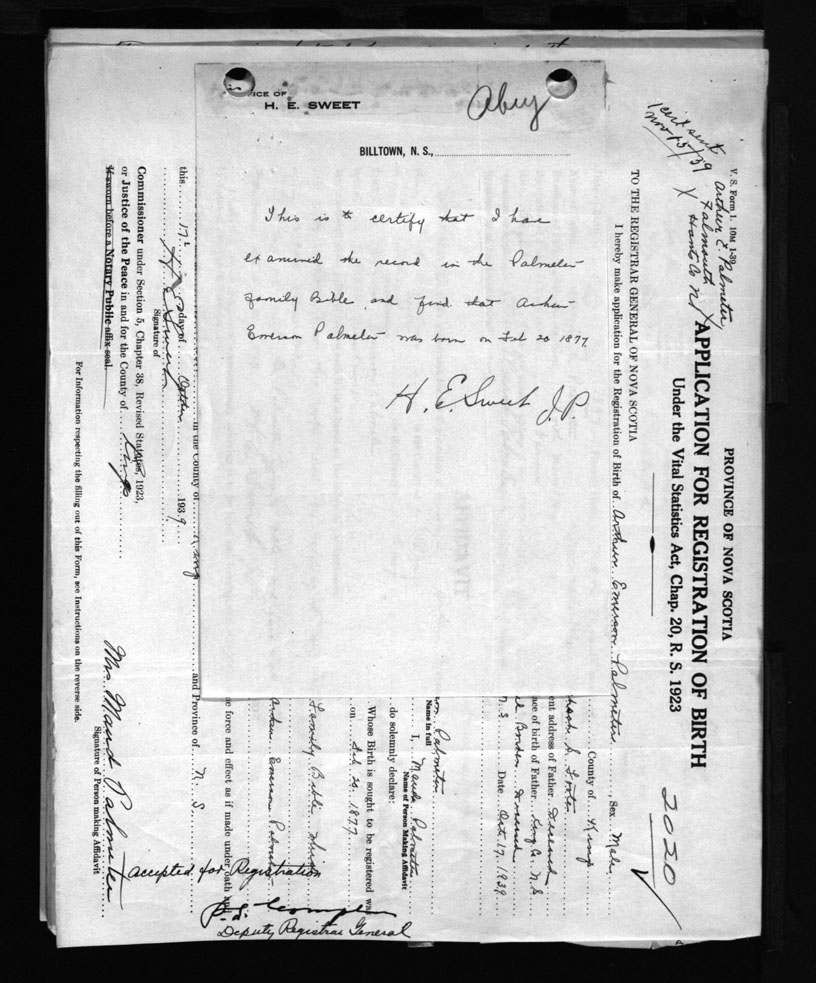 OFFICE OF
H. E. SWEET
Abey
BILLTOWN, N. S.,
This is to certify that I have
examined the record in the Palmeter
family Bible and find that Arthur
Emerson Palmeter was born on Feb 20 1877.
H. E. Sweet J. P.
1 cert sent
Nov 15/39
V. S. Form 1. 10M 1-39.
Arthur E. Palmeter,
Falmouth
Hants Co N.S.
PROVINCE OF NOVA SCOTIA
APPLICATION FOR REGISTRATION OF BIRTH
Under the Vital Statistics Act, Chap. 20, R. S. 1923
2020
TO THE REGISTRAR GENERAL OF NOVA SCOTIA
I hereby make application for the Registration of Birth of Arthur Emerson Palmeter, Sex Male
County of Kings
ent address of Father Deceased
ace of birth of Father Kings Co. N.S.
N. S. Date Oct. 17. 1939
on Palmeter
Name in full
I, Maude Palmeter
Name of Person Making Affidavit
do solemnly declare:
Whose Birth is sought to be registered wa
on Feb. 20. 1877
Family Bible
Arthur Emerson Palmeter
e force and effect as if made under oath
in the County of Kings and Province of N. S.
this 17th day of October 1939
H. E. Sweet
Signature of
Commissioner under Section 5, Chapter 38, Revised Statutes, 1923,
or Justice of the Peace in and for the County of Kings
If sworn before a Notary Public affix seal.
Mrs. Maud Palmeter
Signature of Person making Affidavit
For Information respecting the filling out of this Form, see Instructions on the reverse side.
accepted for Registration
Deputy Registrar General